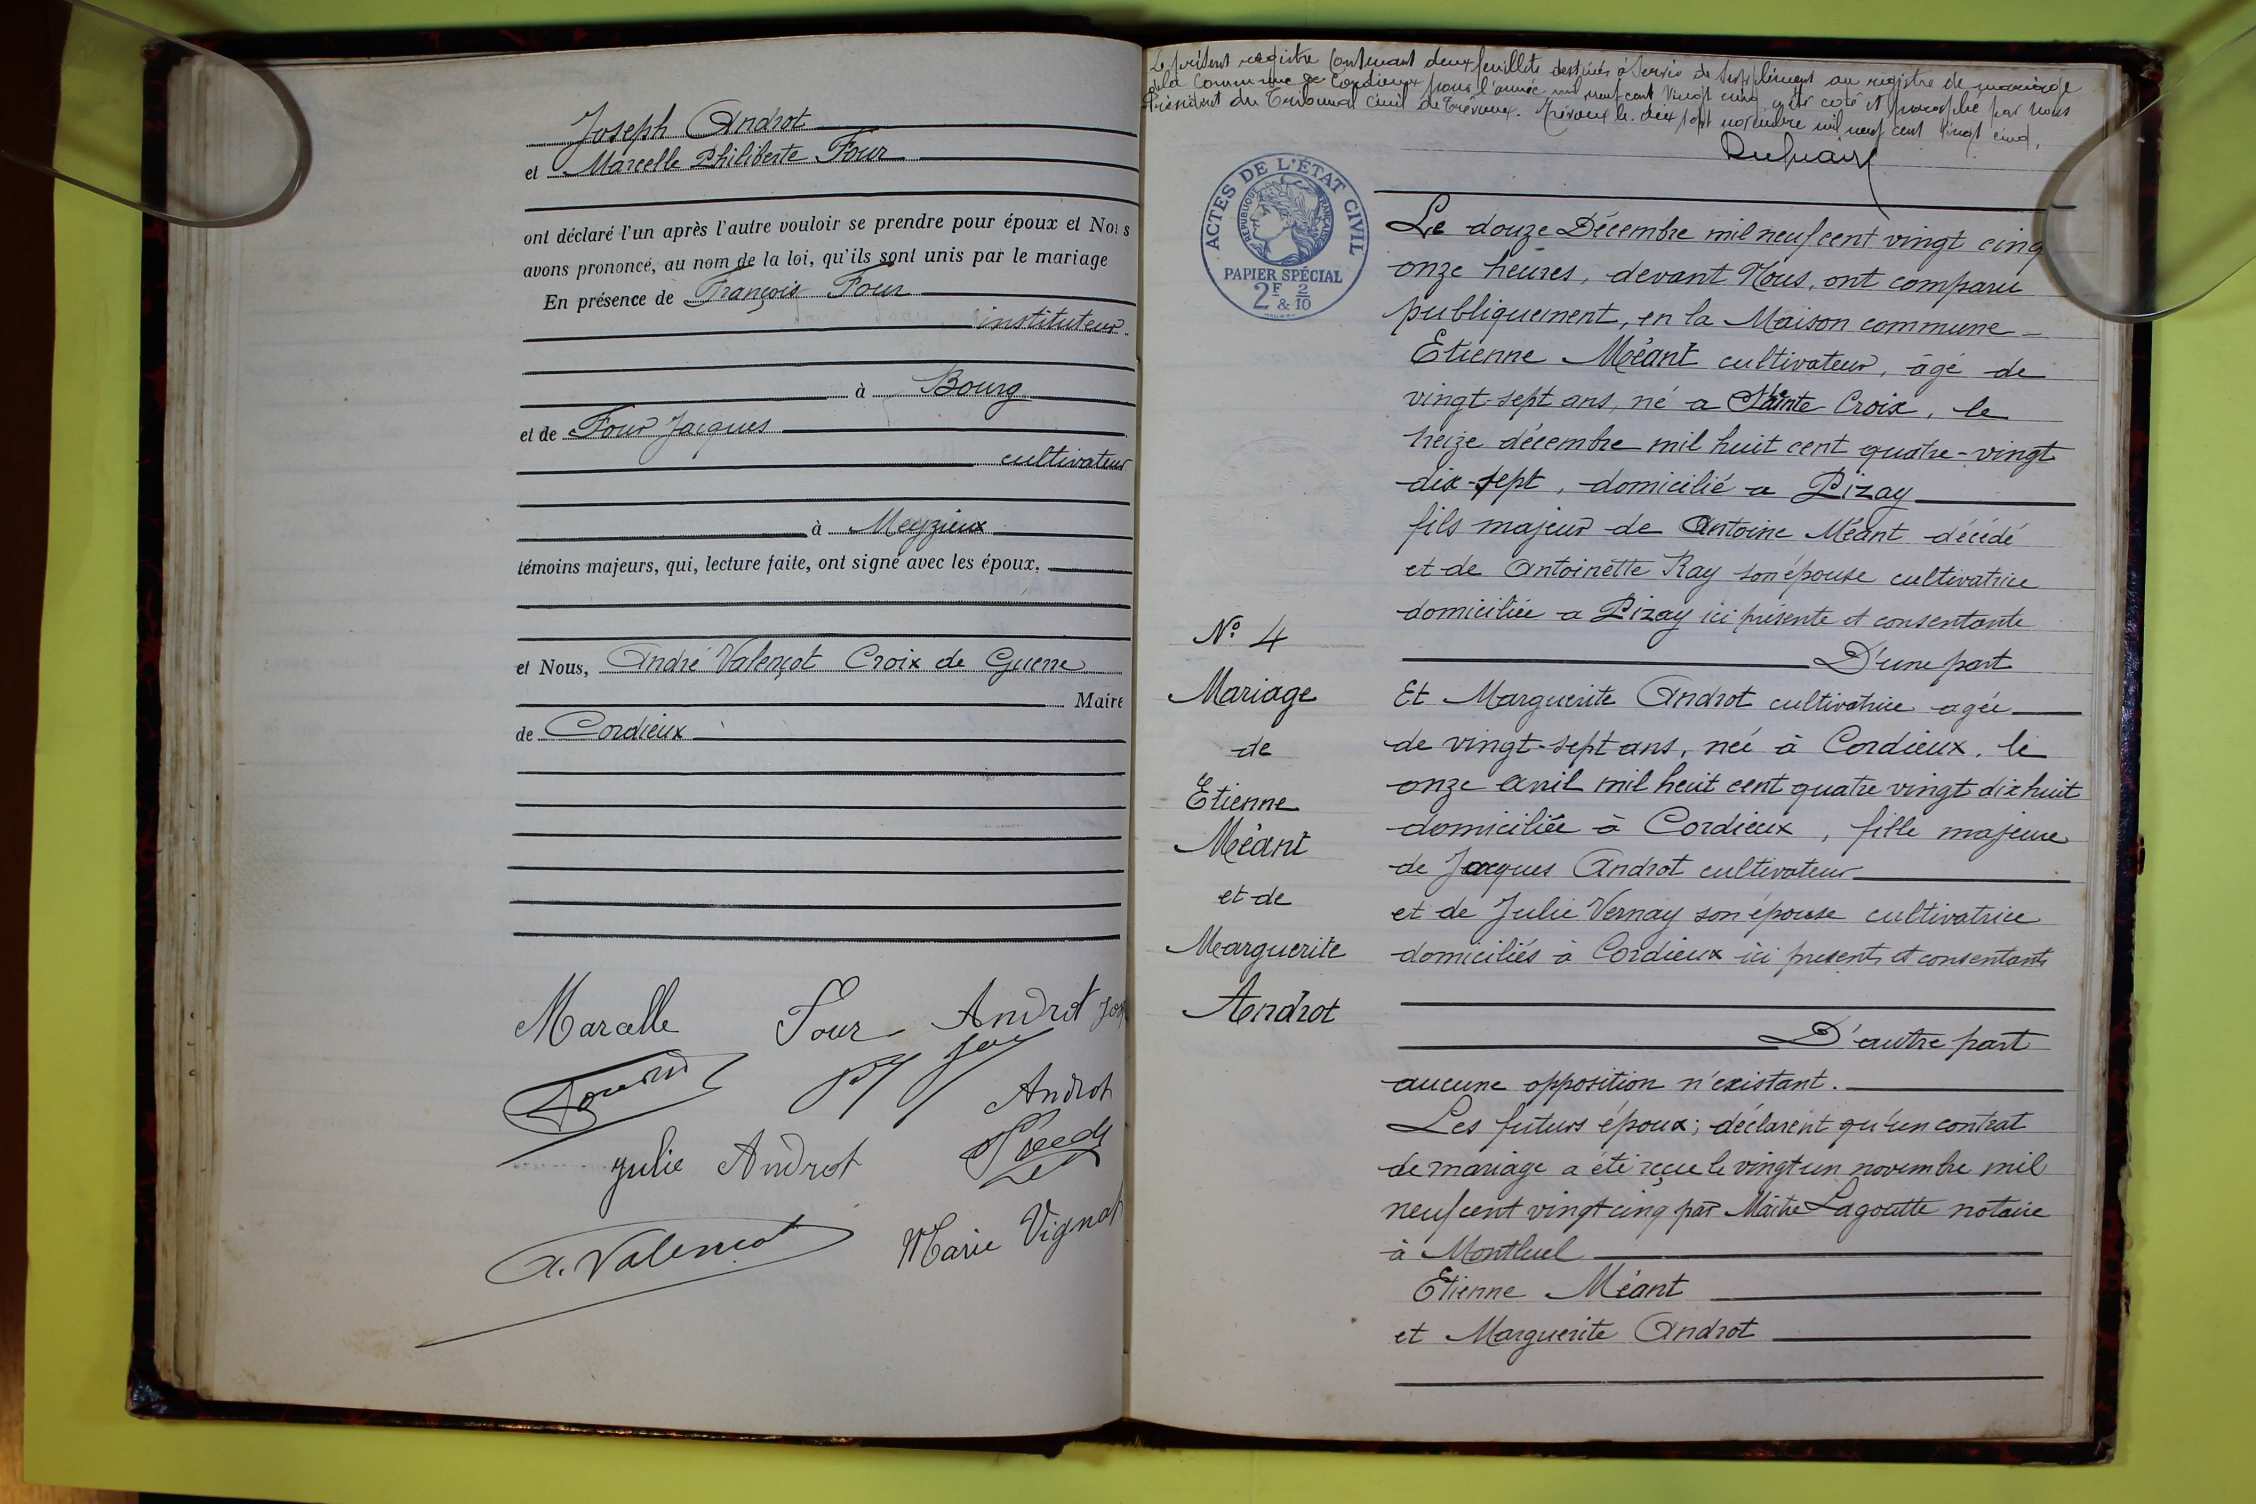 Joseph Androt
et Marcelle Philiberte Four
ont déclaré l'un après l'autre vouloir se prendre pour époux et Nous
avons prononcé, au nom de la loi, qu'ils sont unis par le mariage
En présence de François Four
instituteur
à Bourg
et de Four Jacques
cultivateur
à Meyzieux
témoins majeurs, qui, lecture faite, ont signé avec les époux.
et Nous, André Valençot Croix de Guerre
Maire
de Cordieux
Marcelle Four Androt Jos
Androt
Julie Androt
Marie Vignat
A. Valençot
Le présent registre contenant deux feuillets destinés à servir de supplément au registre de mariage
de la Commune de Cordieux pour l'année mil neuf cent vingt cinq a été coté et paraphé par nous
Président du Tribunal Civil de Trévoux. Trévoux le dix sept novembre mil neuf cent vingt cinq.
ACTES DE L'ÉTAT CIVIL
RÉPUBLIQUE FRANÇAISE
PAPIER SPÉCIAL
2F & 2/10
Le douze Décembre mil neuf cent vingt cinq
onze heures, devant Nous, ont comparu
publiquement, en la Maison commune
Etienne Méant cultivateur, âgé de
vingt-sept ans, né a Sainte Croix, le
treize décembre mil huit cent quatre-vingt
dix-sept, domicilié a Pizay
fils majeur de Antoine Méant décédé
et de Antoinette Ray son épouse cultivatrice
domiciliée a Pizay ici présente et consentante
D'une part
N° 4
Mariage
de
Etienne
Méant
et de
Marguerite
Androt
Et Marguerite Androt cultivatrice agée
de vingt-sept ans, née à Cordieux, le
onze avril mil huit cent quatre vingt dix huit
domiciliée à Cordieux, fille majeure
de Jacques Androt cultivateur
et de Julie Vernay son épouse cultivatrice
domiciliés à Cordieux ici présents et consentants
D'autre part
aucune opposition n'existant.
Les futurs époux; déclarent qu'un contrat
de mariage a été reçu le vingt un novembre mil
neuf cent vingt cinq par Maître Lagoutte notaire
à Montluel
Etienne Méant
et Marguerite Androt